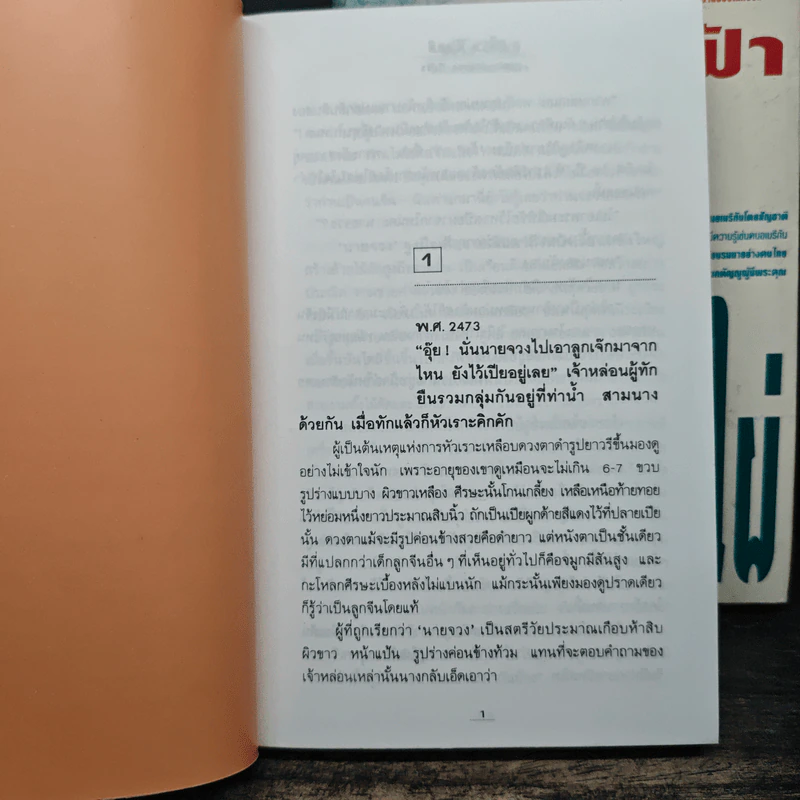 1
พ.ศ. 2473
“อุ๊ย! นั่นนายจวงไปเอาลูกเจ๊กมาจาก
ไหน ยังไว้เปียอยู่เลย” เจ้าหล่อนผู้ทัก
ยืนรวมกลุ่มกันอยู่ที่ท่าน้ำ สามนาง
ด้วยกัน เมื่อทักแล้วก็หัวเราะคิกคัก
ผู้เป็นต้นเหตุแห่งการหัวเราะเหลือบดวงตาดำรูปยาวรีขึ้นมองดู
อย่างไม่เข้าใจนัก เพราะอายุของเขาดูเหมือนจะไม่เกิน 6-7 ขวบ
รูปร่างแบบบาง ผิวขาวเหลือง ศีรษะนั้นโกนเกลี้ยง เหลือเหนือท้ายทอย
ไว้หย่อมหนึ่งยาวประมาณสิบนิ้ว ถักเป็นเปียผูกด้ายสีแดงไว้ที่ปลายเปีย
นั้น ดวงตาแม้จะมีรูปค่อนข้างสวยคือดำยาว แต่หนังตาเป็นชั้นเดียว
มีที่แปลกกว่าเด็กลูกจีนอื่น ๆ ที่เห็นอยู่ทั่วไปก็คือจมูกมีสันสูง และ
กะโหลกศีรษะเบื้องหลังไม่แบนนัก แม้กระนั้นเพียงมองดูปราดเดียว
ก็รู้ว่าเป็นลูกจีนโดยแท้
ผู้ที่ถูกเรียกว่า ‘นายจวง’ เป็นสตรีวัยประมาณเกือบห้าสิบ
ผิวขาว หน้าแป้น รูปร่างค่อนข้างท้วม แทนที่จะตอบคำถามของ
เจ้าหล่อนเหล่านั้นนางกลับเอ็ดเอาว่า
1